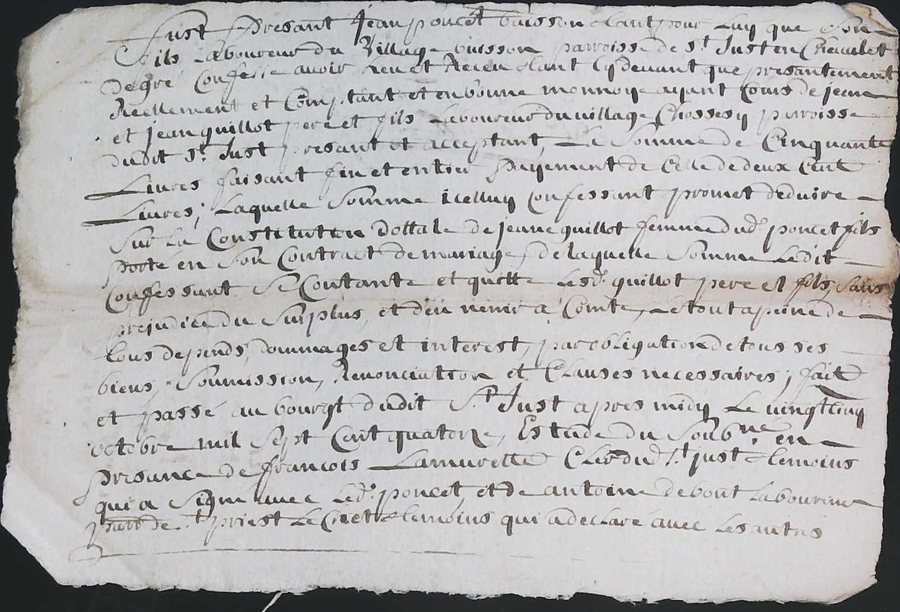 fust presant jean poncet buisson tant pour luy que son
fils laboureur du village buisson parroisse de St Just en Chevalet
degré confesse avoir heu et receu tant cydevant que presantement
Reellement et Comptant et en bonne monnoye ayant Cours de jeane
et jean quillot pere et fils laboureur du village Chossesy parroisse
dudit St Just presant et acceptant, la Somme de Cinquante
Livres faisant fin et entier payement de Celle de deux Cent
Livres; laquelle Somme icelluy Confessant promet deduire
Sur la Constitution dottale de jeane quillot femme dud. poncet fils
porté en Son Contract de mariage, de laquelle Somme ledit
Confessant Se Contante et quitte lesd. quillot pere et fils Sans
prejudice du Surplus, et d'en venir a Comte, le tout a peine de
tous depends dommages et interest, par obligation de tous ses
biens, Soumission, Renonciation et Clauses necessaires; fait
et passé au bourgt dudit St Just apres midy le vingtcinq
octobre mil sept Cent quatorze, Estude du Soubne en
presance de francois Lamurette Clerc dud. St just temoins
qui a Signé avec led. poncet, et de antoine debout laboureur
parr. de St priest temoins qui a declaré avec les autres